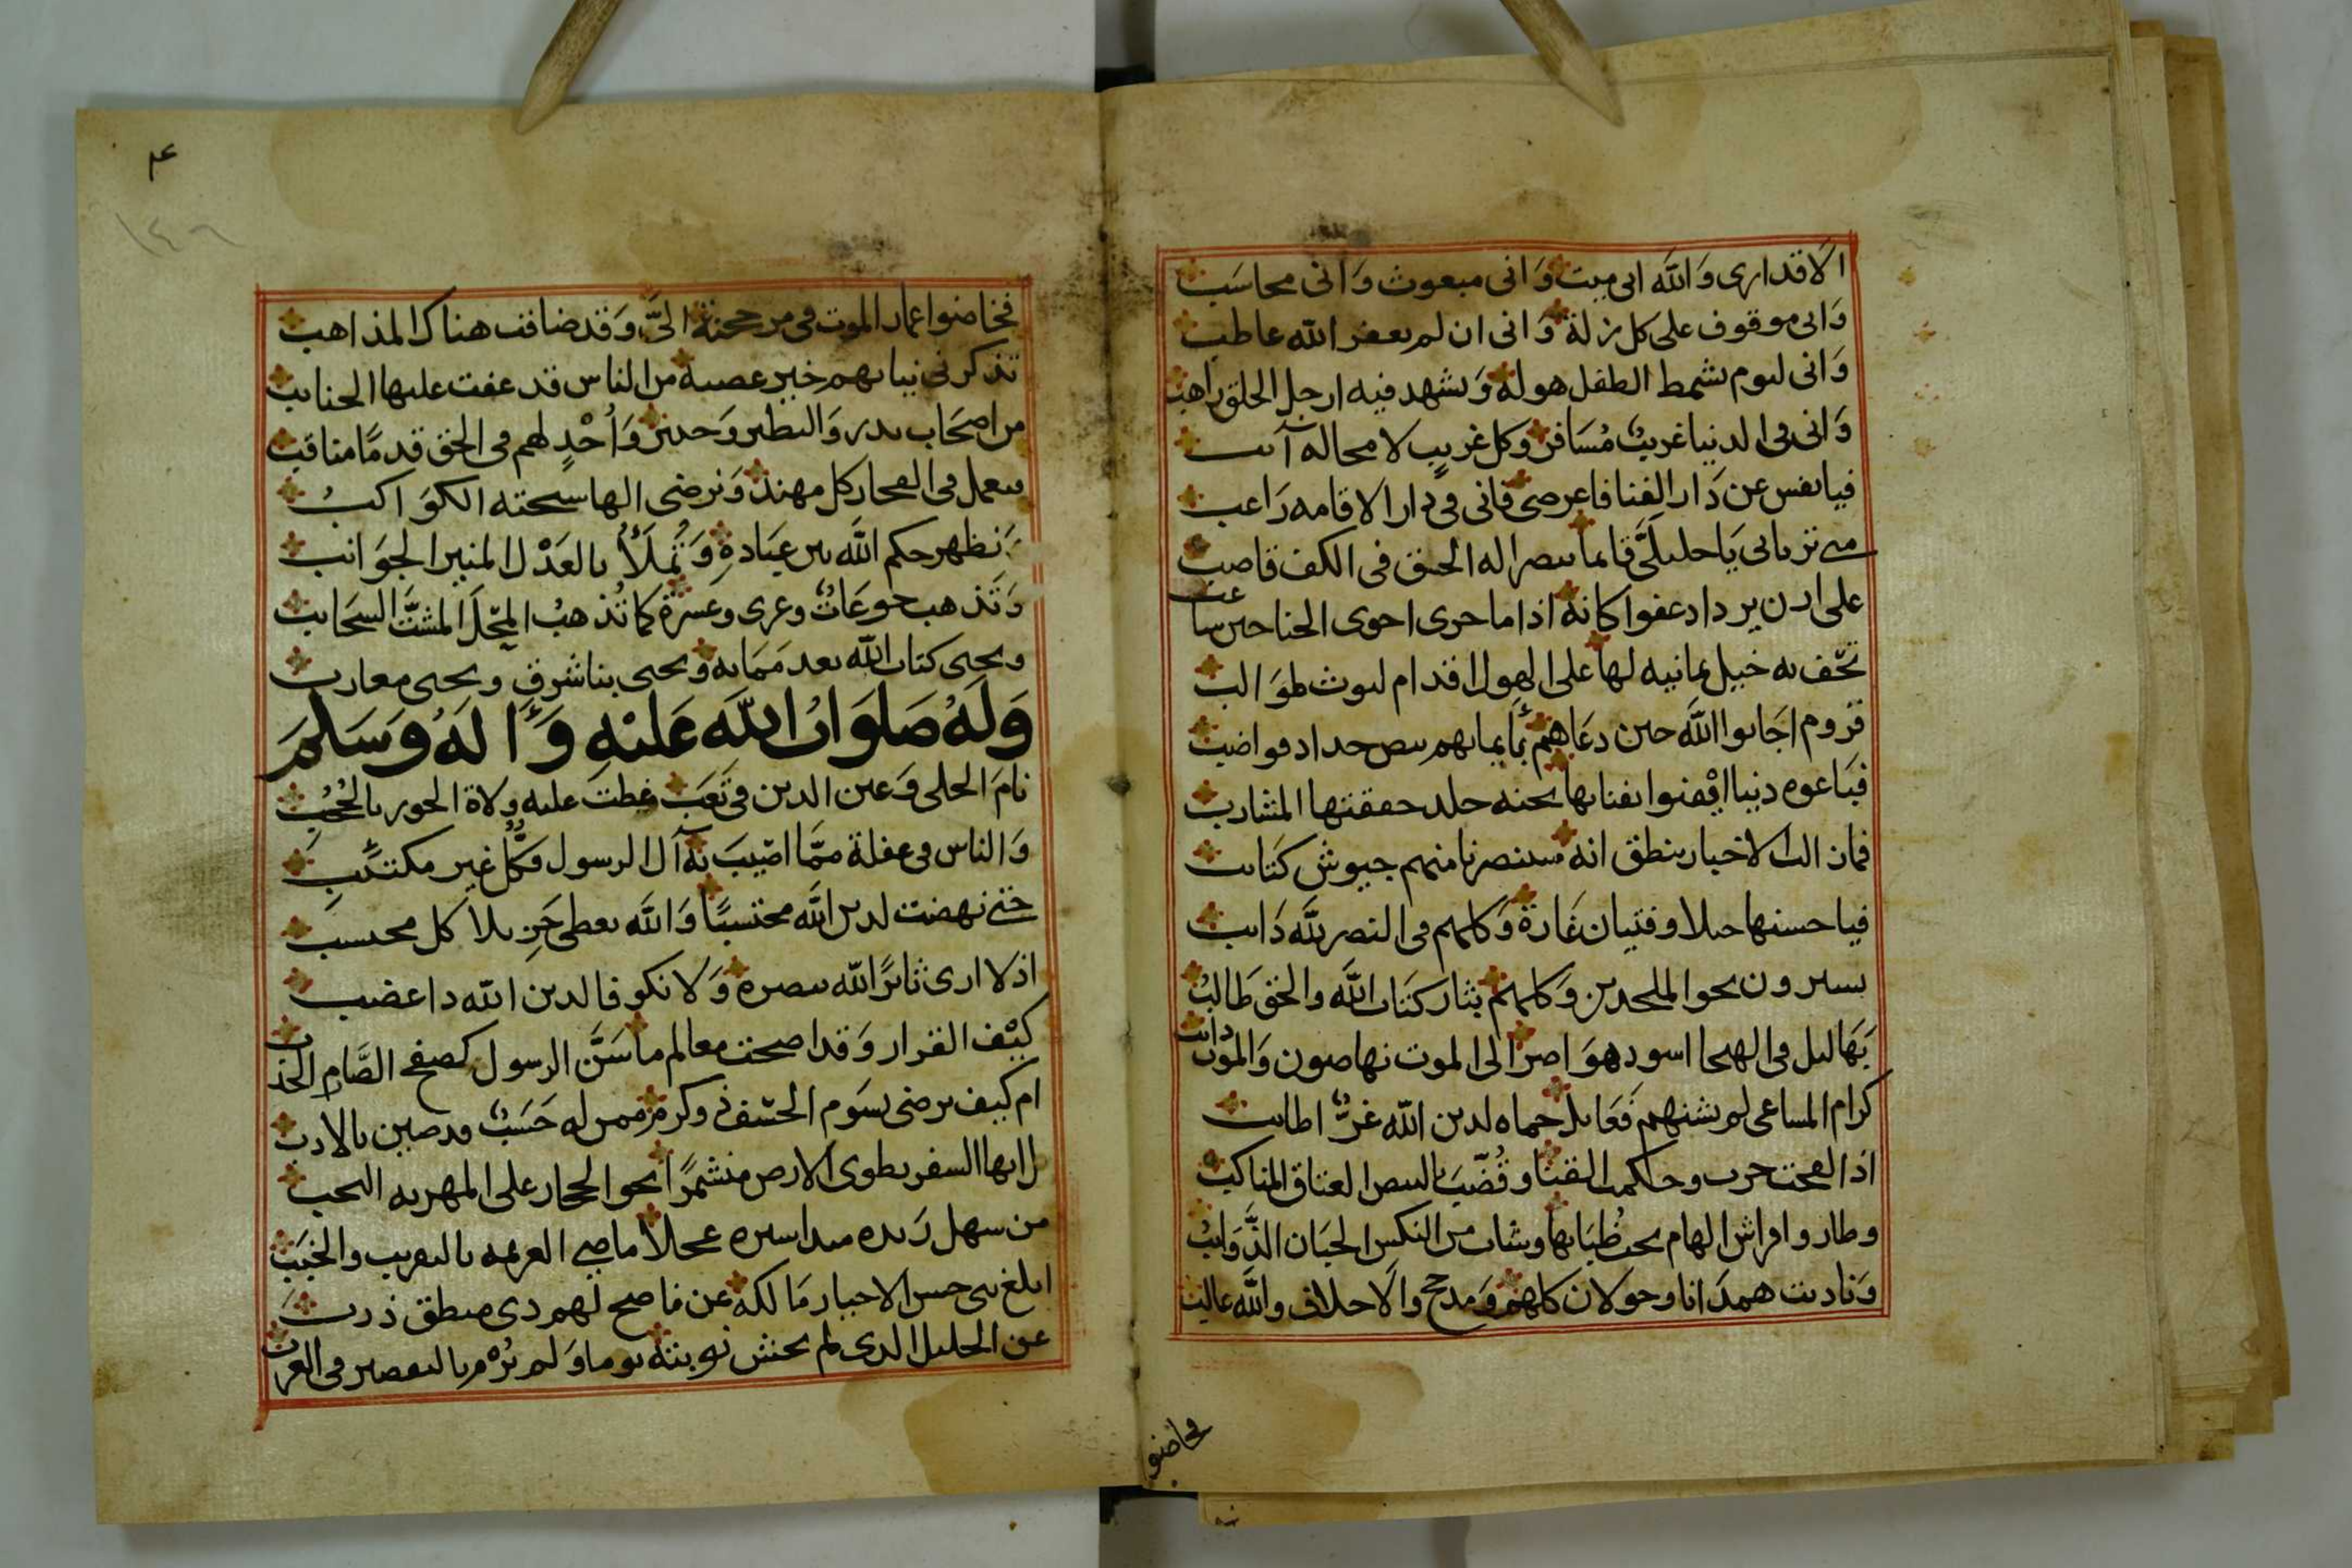 الا قد ارى والله انى ميت وانى مبعوث وانى محاسب
وانى موقوف على كل زلة وانى ان لم يغفر الله عاطب
وانى ليوم يشمط الطفل هوله ويشهد فيه ارجل الخلق راهب
وانى فى الدنيا غريبٌ مُسَافر وكل غريبٍ لا محاله آئب
فيا نفس عن دَار الفنا فاعرضى فانى فى دار الاقامه رَاغب
متى ترياني يَا خليليَّ قائما بنصر اله الخلق فى الكف قاضب
على ادن يرداد عفوا كانه اذا ما جرى احوى الجناحين
تحف به خيل يمانيه لها على الهول اقدام ليوث طوَالب
قروم اجَابوا الله حين دعَاهم بأيمانهم بيض حداد قواضب
فبَاعوه دنيا ايقنوا بفنائها بجنه خلد حققتها المشارب
الاخبار ينطق انه سينصرنا منهم جيوش كتائب
فيا حسنها خيلا وفتيان غارة وكلهم فى النصر لله دَائب
يسيرون نحو الملحدين وكلهم بثار كتاب الله والحق طالبُ
بَهَاليل فى الهيجا اسود هوَاصر الى الموت نهاضون وَالموت دائب
كرام المساعى لم يشنهم فَعَايل حماه لدين الله غرٌّ اطائب
اذا القحت حرب وحكمت القنا وقُضّبَ بالبيض العتاق المناكب
وطار وافراش الهام تحت ظُبَاتها وشاب من النكس الجبَان الذَّوَايبُ
وَنَاديت همدَانا وخولان كلهم وَمذحج والاحلاف والله غالب
فخاضو
٤
١٤٦
فخاضوا غمار الموت فى مرجحنة اليَّ وَقد ضاقت هناك المذاهب
تذكرنى نياتهم خير عصبة من الناس قد عفت عليها الجنائب
من اصحَاب بدر وَالنظير وَحنين وَأُحْدٍ لهم فى الحق قدمًا مناقب
كل مهند وَترضى الها سبحته الكوَاكبُ
وَنظهر حكم الله بين عبَادهِ وَتُملَأُ بالعَدْل المنير الجوَانب
وَتَذهب جوعَاتٌ وعرى وعسرة كما تُذهبُ المَحْلَ المشتَّ السحَائب
ويحيى كتاب الله بعد مَمَاته ويحيى بنا شرقٍ ويحيى مغارب
وَلَهُ صَلوَاتُ اللهِ عَلَيْهِ وَآلِهِ وَسَلم
نامَ الخلى وَعين الدين فى تَعَب غطت عليه ولاة الجور بالحُجُبِ
وَالناس فى غفلة ممَّا اصيبَ به آل الرسول وَكُلٌّ غير مكتئبِ
حتى نهضت لدين الله محتسبًا وَالله يعطى جَزيلا كل محتسب
اذ لا ارى ثائرًا لله ينصره وَلا نكوفا لدين الله ذا غضب
كَيْف القرار وَقد اضحت معالم ما سَنَّ الرسول كصفح الصَّارم الخذب
ام كيف يرضى بسَوم الخسف ذو كرم ممن له حَسَبٌ وَدين بالادب
ل ايها السفر يطوى الارض منشمرًا نحو الحجاز على المهريه النجب
من سهل رَيده مبدا سيره عجلا ماضى العزيمه بالتقريب والخبَبِ
ابلغ بنى حسن الاخيار مَالكه عن ناصح لهم ذى منطق ذرب
عن الخليل الذى لم يخش نوبته يوما وَلم يُرْم بالتقصير فى القرب